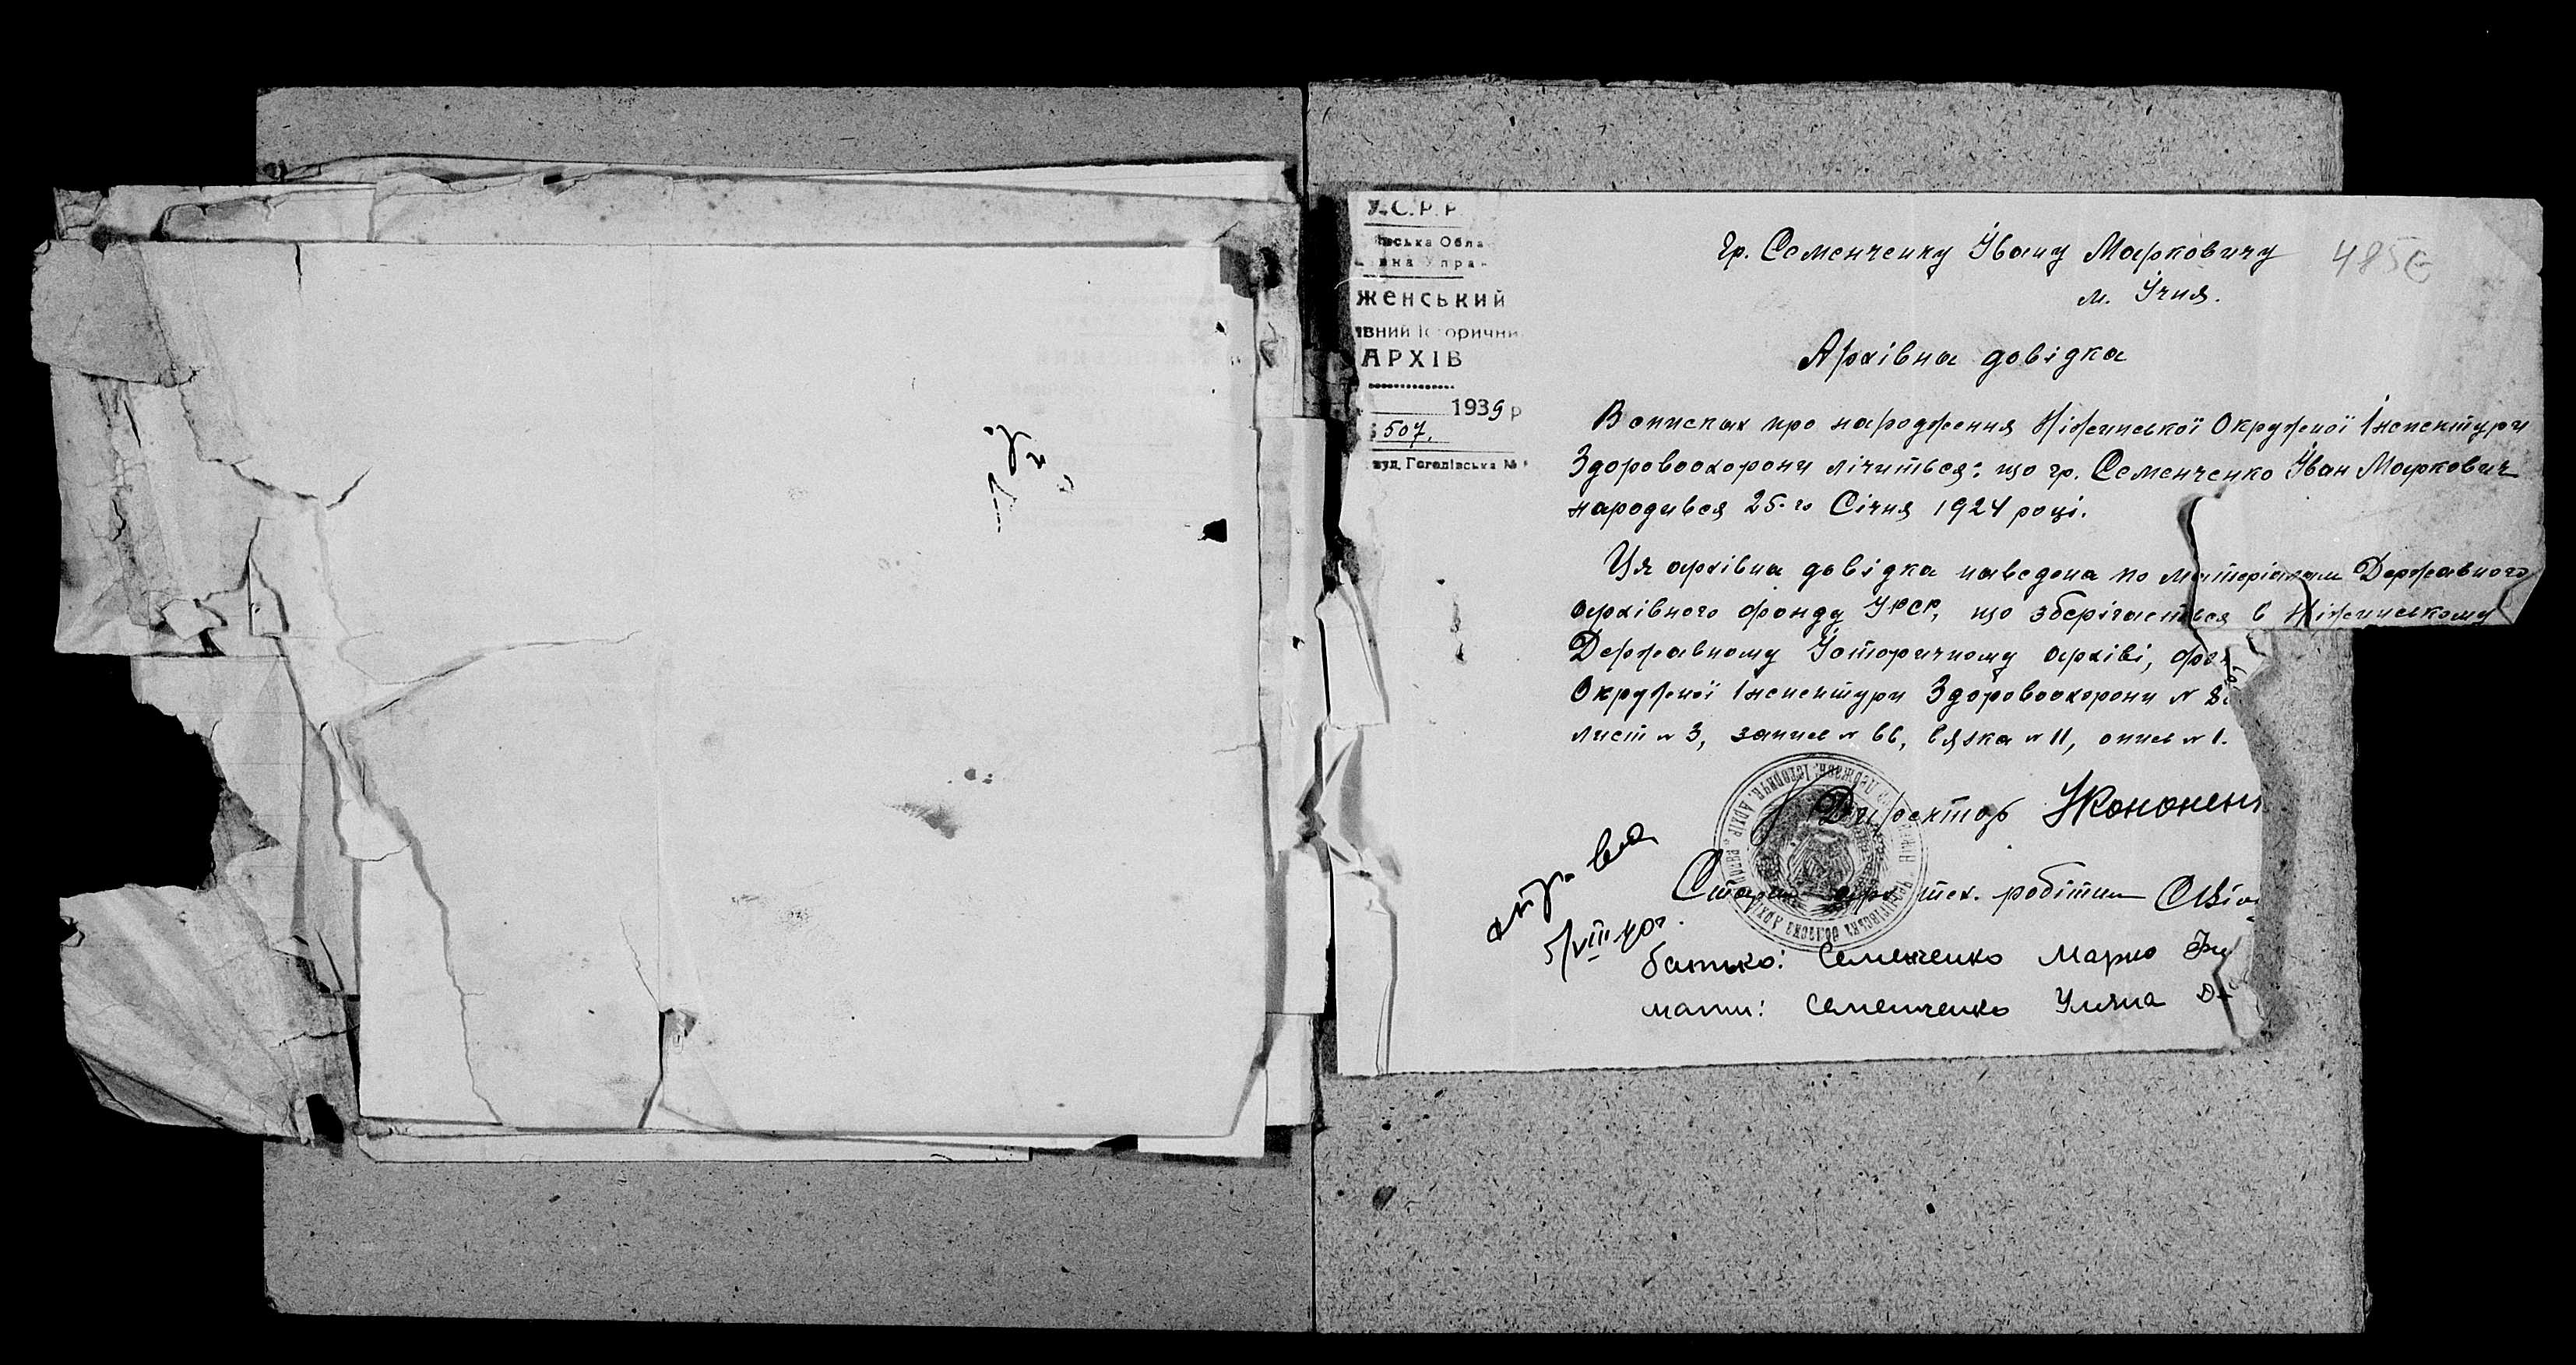 У.С.Р.Р.
женський
АРХІВ
1939 р
507.
вул. Гоголівська №
гр. Семенченку Йвану Марковичу
485
м. Ічня.
Архівна довідка
В описках про народження Ніжинської Окружної Інспектури
Здоровоохорони лічиться: що гр. Семенченко Йван Маркович
народився 25-го Січня 1924 році.
Ця архівна довідка наведена по матеріалам Державного
архівного фонду УРСР, що зберігається в Ніжинському
Державному Історичному архіві, фон
Окружної Інспектури Здоровоохорони №
лист № 3, запис № 66, вязка № 11, опис № 1.
Директор
робітник
5/VIII
батько: Семенченко Марко
мати: Семенченко Уляна